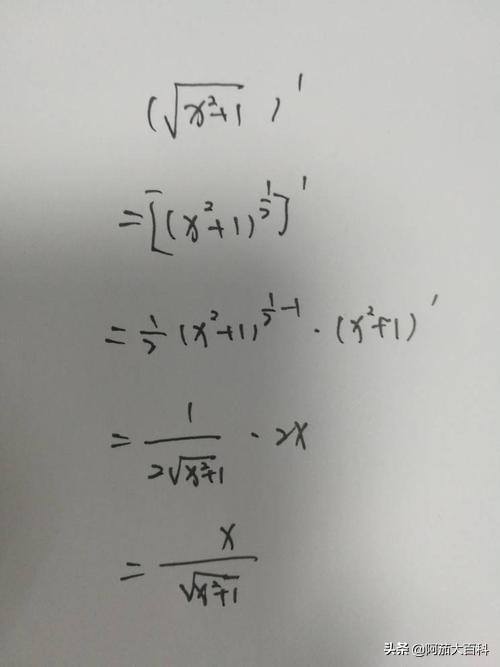 (√(x²+1))′
=[(x²+1)^(1/2)]′
=1/2(x²+1)^(1/2-1)·(x²+1)′
=1/(2√(x²+1))·2x
=x/√(x²+1)
头条 @阿茄大百科